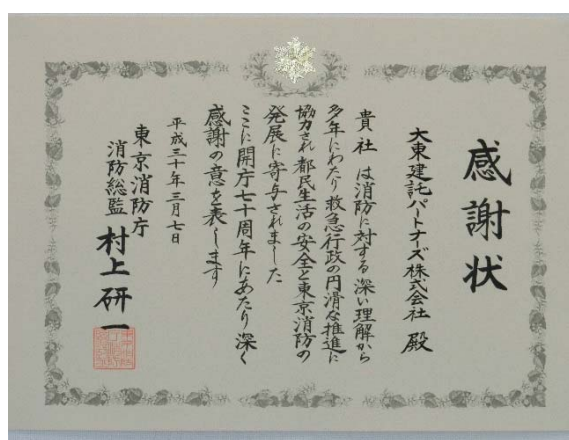 感謝状
大東建託パートナーズ株式会社 殿
貴社は消防に対する深い理解から
多年にわたり救急行政の円滑な推進に
協力され都民生活の安全と東京消防の
発展に寄与されました
ここに開庁七十周年にあたり深く
感謝の意を表します
平成三十年三月七日
東京消防庁
消防総監 村上研一